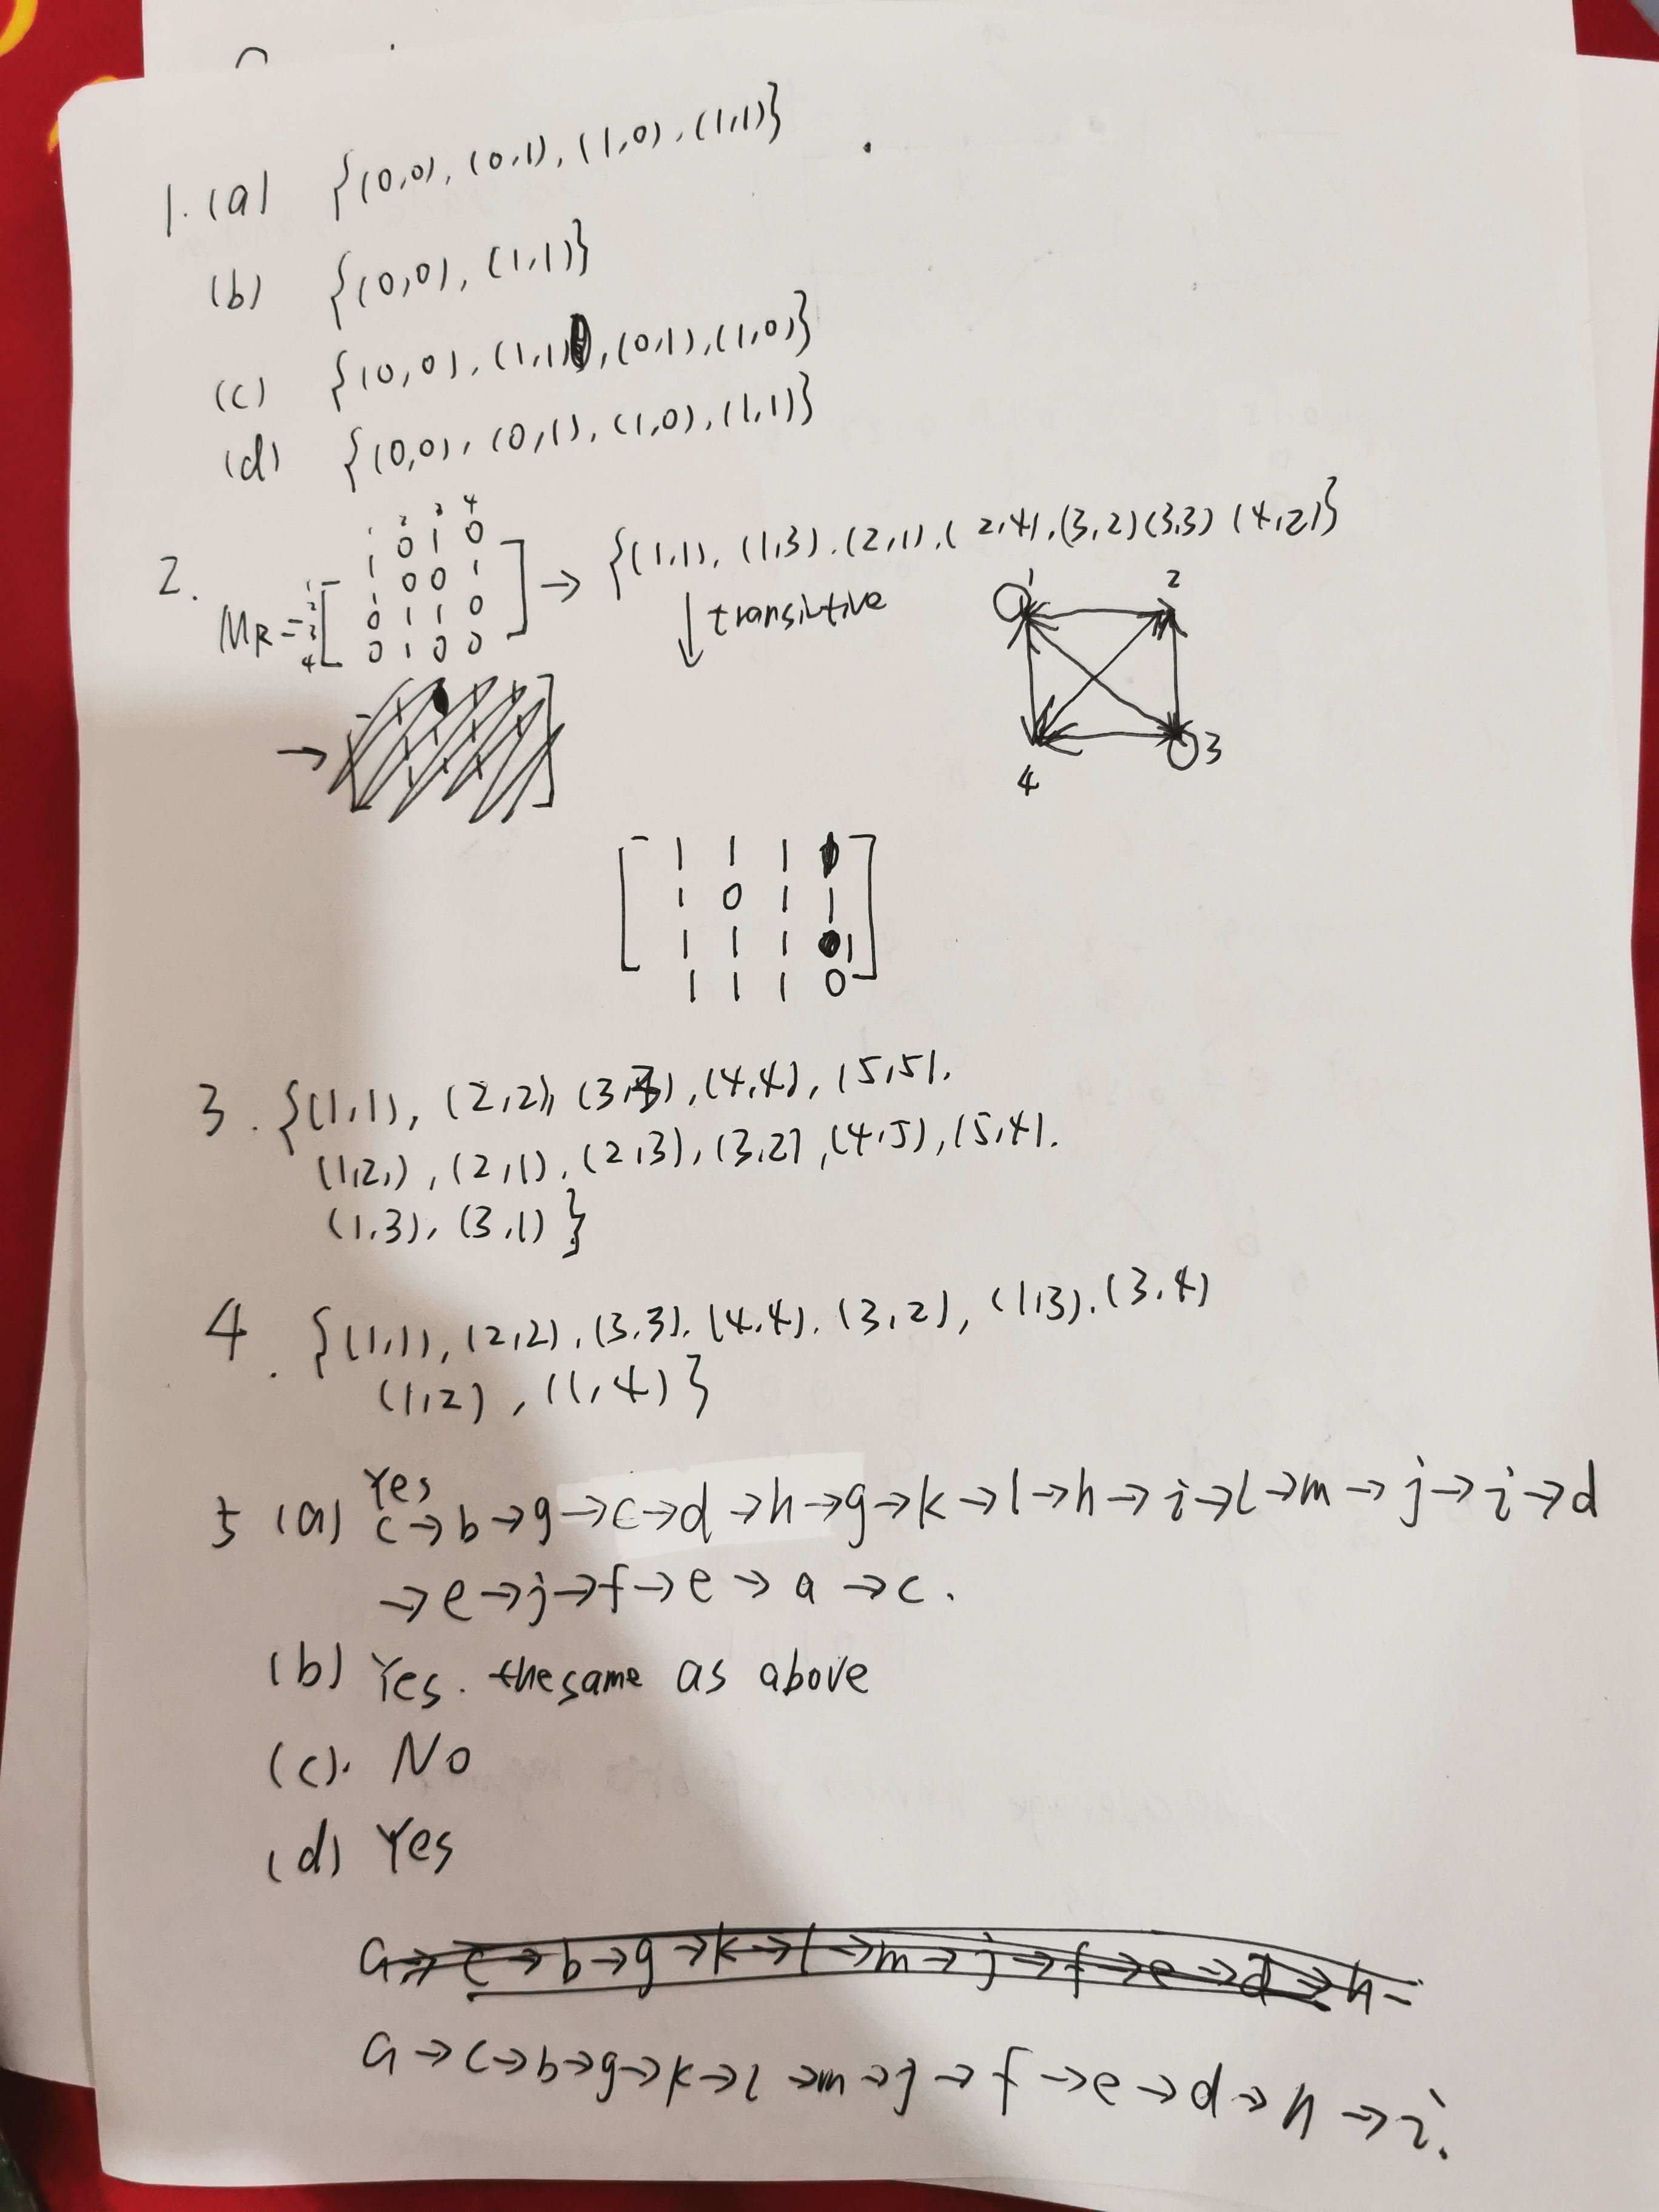 1. (a) {(0,0), (0,1), (1,0), (1,1)}
(b) {(0,0), (1,1)}
(c) {(0,0), (1,1), (0,1), (1,0)}
(d) {(0,0), (0,1), (1,0), (1,1)}
1 2 3 4
2. MR = 1 2 3 4 [
1 0 1 0
1 0 0 1
0 1 1 0
0 1 0 0
] → {(1,1), (1,3), (2,1), (2,4), (3,2) (3,3) (4,2)}
↓ transivtive
1 2
4 3
→
[ 1 1 1
1 0 1 1
1 1 1 1
1 1 1 0 ]
3. {(1,1), (2,2), (3,3), (4,4), (5,5),
(1,2,), (2,1), (2,3), (3,2), (4,5), (5,4),
(1,3), (3,1)}
4. {(1,1), (2,2), (3,3), (4,4), (3,2), (1,3), (3,4)
(1,2), (1,4)}
Yes
5 (a) c→b→g→c→d→h→g→k→l→h→i→l→m→j→i→d
→e→j→f→e→a→c.
(b) Yes. the same as above
(c). No
(d) Yes
a→c→b→g→k→l→m→j→f→e→d→h-
a→c→b→g→k→l→m→j→f→e→d→h→i.